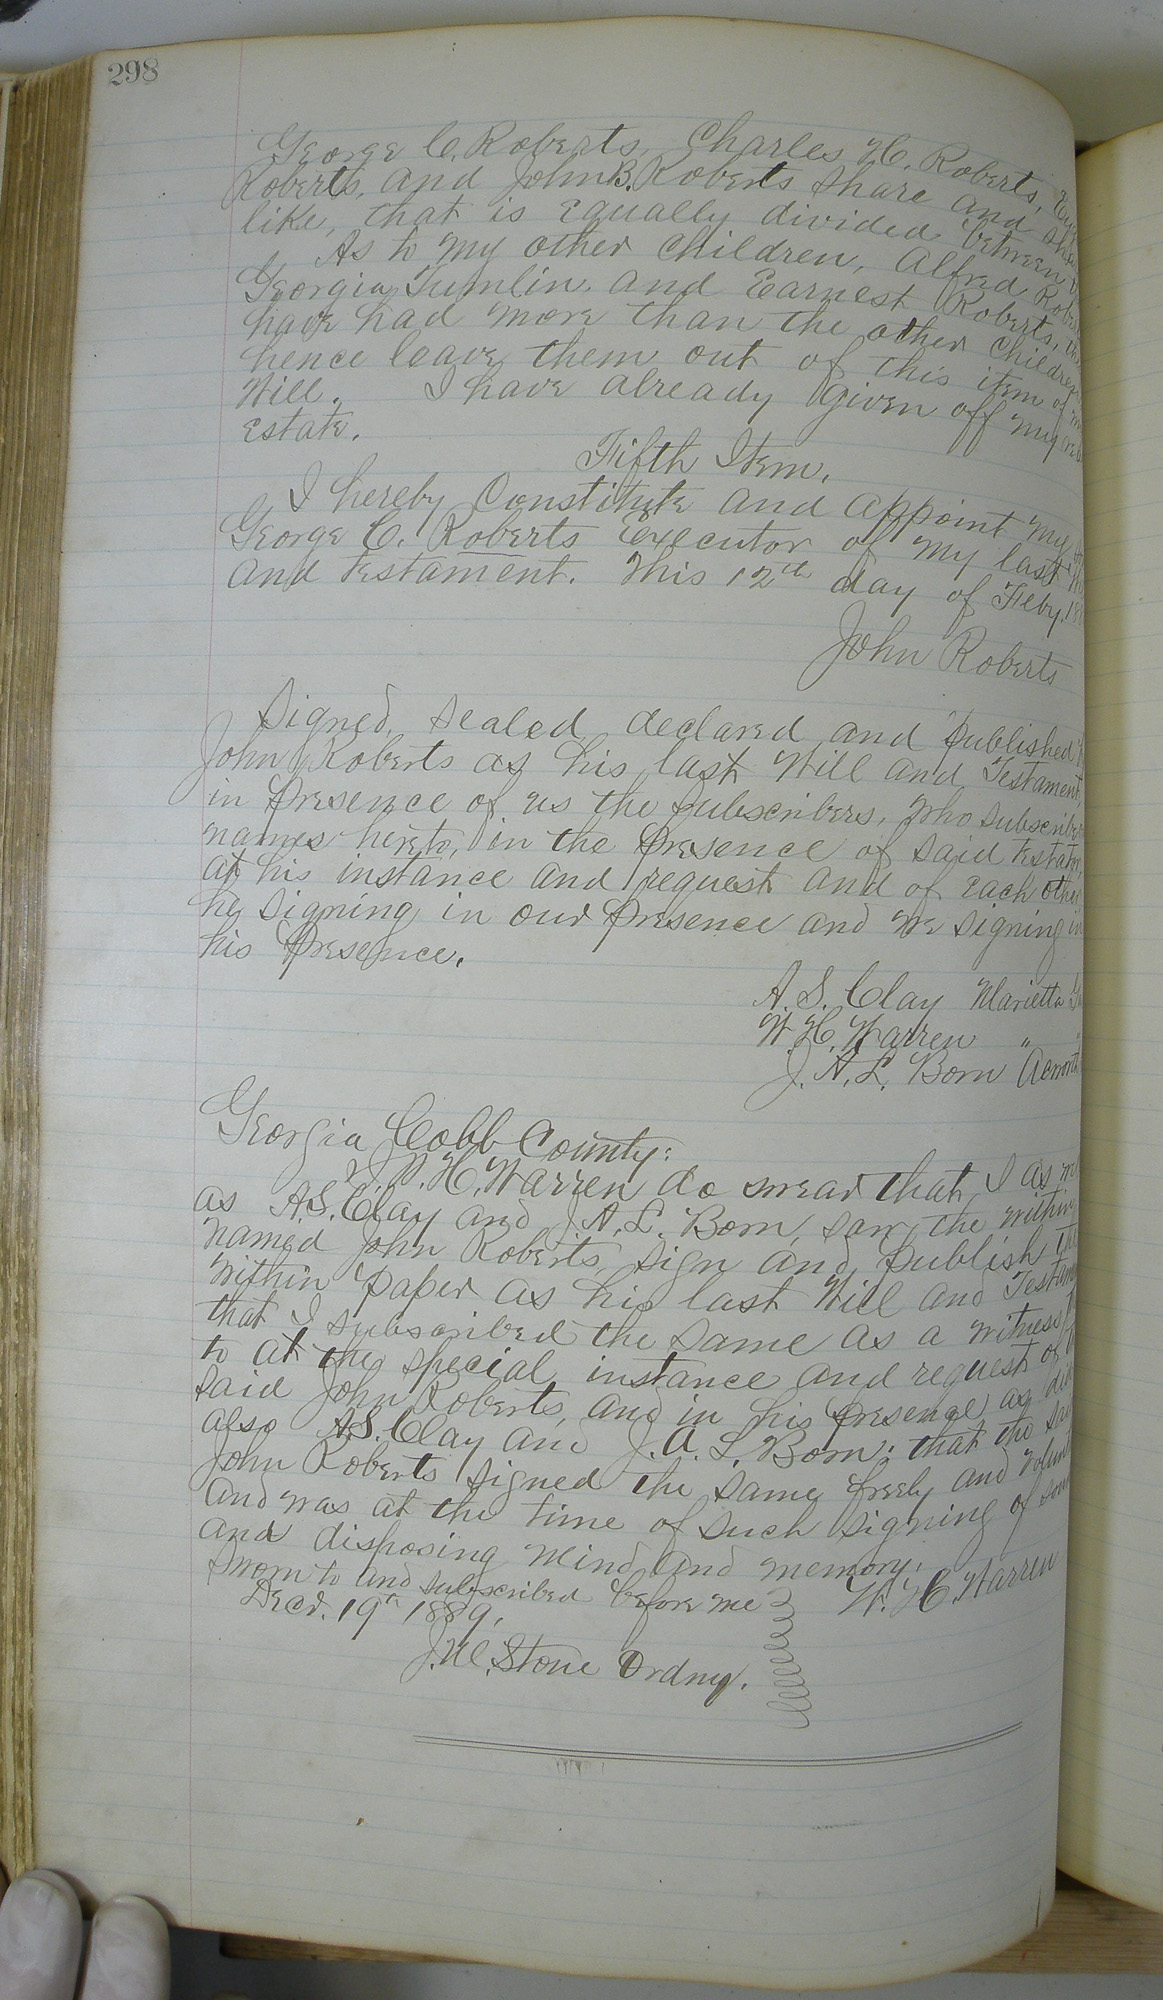 298
George C. Roberts, Charles H. Roberts,
Roberts, and John B. Roberts share and share
like, that is equally divided between
As to my other children, Alfred Roberts
Georgia Tumlin, and Earnest Roberts,
have had more than the other children
hence leave them out of this item of my
Will. I have already given off my
estate.
Fifth Item.
I hereby Constitute and appoint my
George C. Roberts Executor of my last
and testament. This 12th day of Feby.
John Roberts
Signed, sealed, declared and published
John Roberts as his last Will and Testament,
in presence of us the subscribers, who subscribe
names hereto, in the presence of said testator,
at his instance and request and of each other
he signing in our presence and we signing in
his presence.
A. S. Clay Marietta
W. H. Warren "
J. A. L. Born Acworth
Georgia Cobb County:
I, W. H. Warren do swear that, I as
as A. S. Clay and J. A. L. Born, saw the within
named John Roberts, sign and publish
within paper as his last Will and
that I subscribed the same as a witness
to at the special instance and request of
said John Roberts, and in his presence as did
also A. S. Clay and J. A. L. Born; that the
John Roberts signed the same freely and
and was at the time of such signing of
and disposing mind and memory.
Sworn to and subscribed before me W. H. Warren
Decr. 19th 1889,
J. M. Stone Ordny.